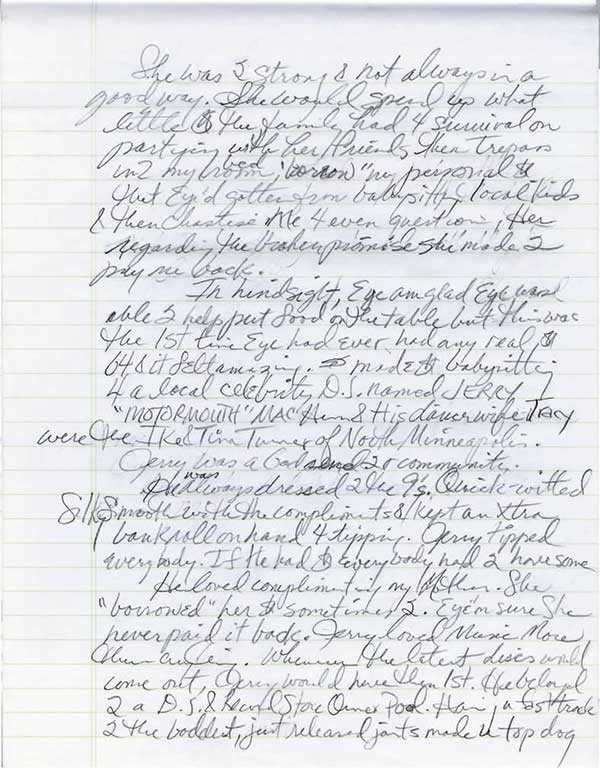 She was 2 strong & not always in a
good way. She would spend up what
little $ the family had 4 survival on
partying with her friends then trespass
in2 my room, "borrow" my personal $
that Eye'd gotten from babysitting local kids
& then chastise Me 4 even questioning Her
regarding the broken promise she made 2
pay me back.
In hindsight, Eye am glad Eye was
able 2 help put food on the table but this was
the 1st time Eye had ever had any real $
& it felt amazing. made $ babysitting
4 a local celebrity D.J. named JERRY
"MOTORMOUTH" MAC. He & His dancer wife TRACY
were the Ike & Tina Turner of North Minneapolis.
Jerry was a God send 2 community.
He was always dressed 2 the 9's. Quick-witted
Silk Smooth with the compliments & kept an Xtra
bankroll on hand 4 tipping. Jerry tipped
everybody. If He had $ everybody had 2 have some
He loved complimenting my Mother. She
"borrowed" her $ sometimes 2. Eye'm sure She
never paid it back. Jerry loved Music More
than anything. Whenever the latest discs would
come out, Jerry would have them 1st. He belonged
2 a D.J. & Record Store Owner Pool. Having a
2 the baddest, just released jams made U top dog